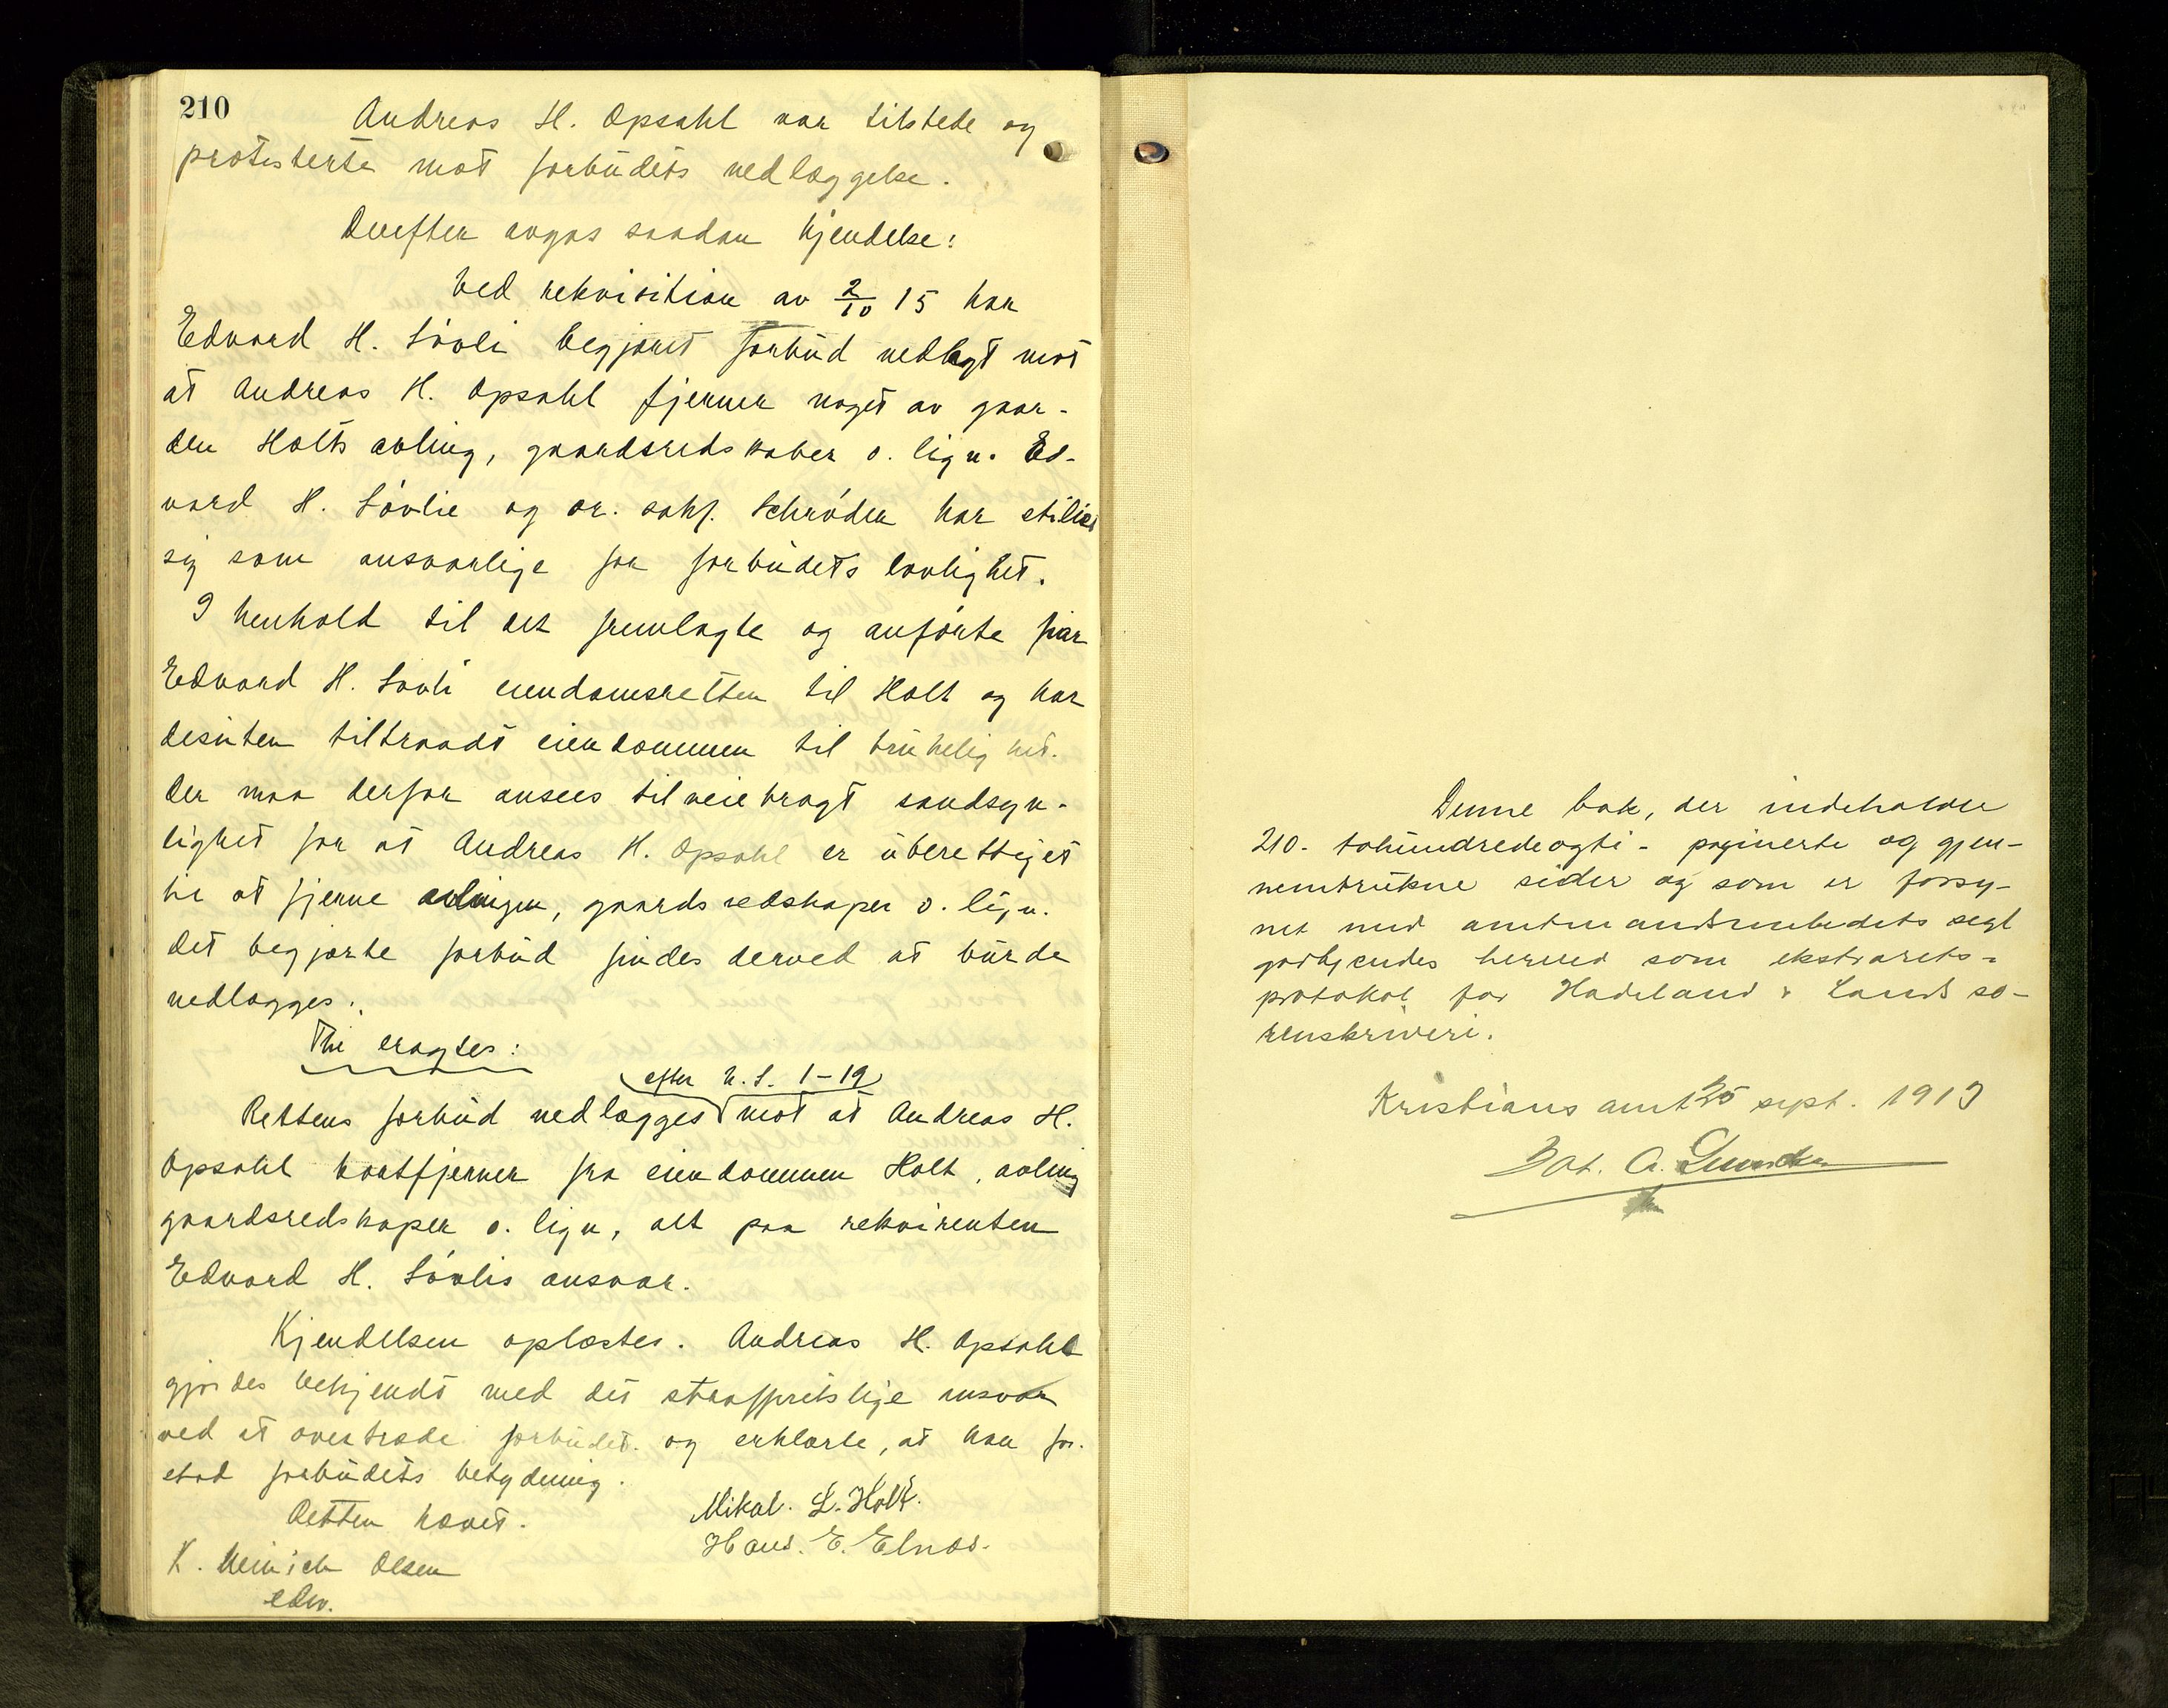 210
Andreas H. Opsahl var tilstede og
protesterte mot forbudets nedlæggelse.
Derefter avgas saadan kjendelse:
Ved rekvisition av 2/10 15 har
Edvard H. Lövli begjæret forbud nedlagt mot
at Andreas H. Opsahl fjerner noget av gaar-
den Holts avling, gaardsredskaber o. lign. Ed-
vard H. Lövlie og or. sakf. Schröder har stillet
sig som ansvarlige for forbudets lovlighet.
I henhold til det fremlagte og anførte har
Edvard H. Lövli eiendomsretten til Holt og har
desuten tiltraadt eiendommen til brukelighet.
Der maa derfor ansees tilveiebragt sandsyn-
lighet for at Andreas H. Opsahl er uberettiget
til at fjerne avlingen, gaardsredskaper o. lign.
Det begjærte forbud findes derved at burde
nedlægges.
Thi eragtes:
efter N. L. 1-19
Rettens forbud nedlægges mot at Andreas H.
Opsahl bortfjerner fra eiendommen Holt, avling
gaardsredskaper o. lign, alt paa rekvirenten
Edvard H. Lövlis ansvar.
Kjendelsen oplæstes. Andreas H. Opsahl
gjordes bekjendt med det strafferetslige ansvar
ved at overtræde forbudet og erklærte, at han for-
stod forbudets betydning.
Retten hævet.
Mikal. L. Holt.
Hans. E. Elnæs.
K. Meinich Olsen
edv.
Denne bok, der indeholder
210 - tohundredeogti - paginerte og gjen-
nemtrukne sider og som er forsy-
net med amtmandsembedets segl
godkjendes herved som ekstrarets-
protokol for Hadeland & Lands so-
renskriveri.
Kristians amt 25 sept. 1913